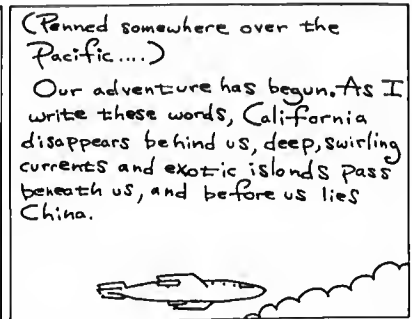 (Penned somewhere over the
Pacific....)
Our adventure has begun. As I
write these words, California
disappears behind us, deep, swirling
currents and exotic islands pass
beneath us, and before us lies
China.